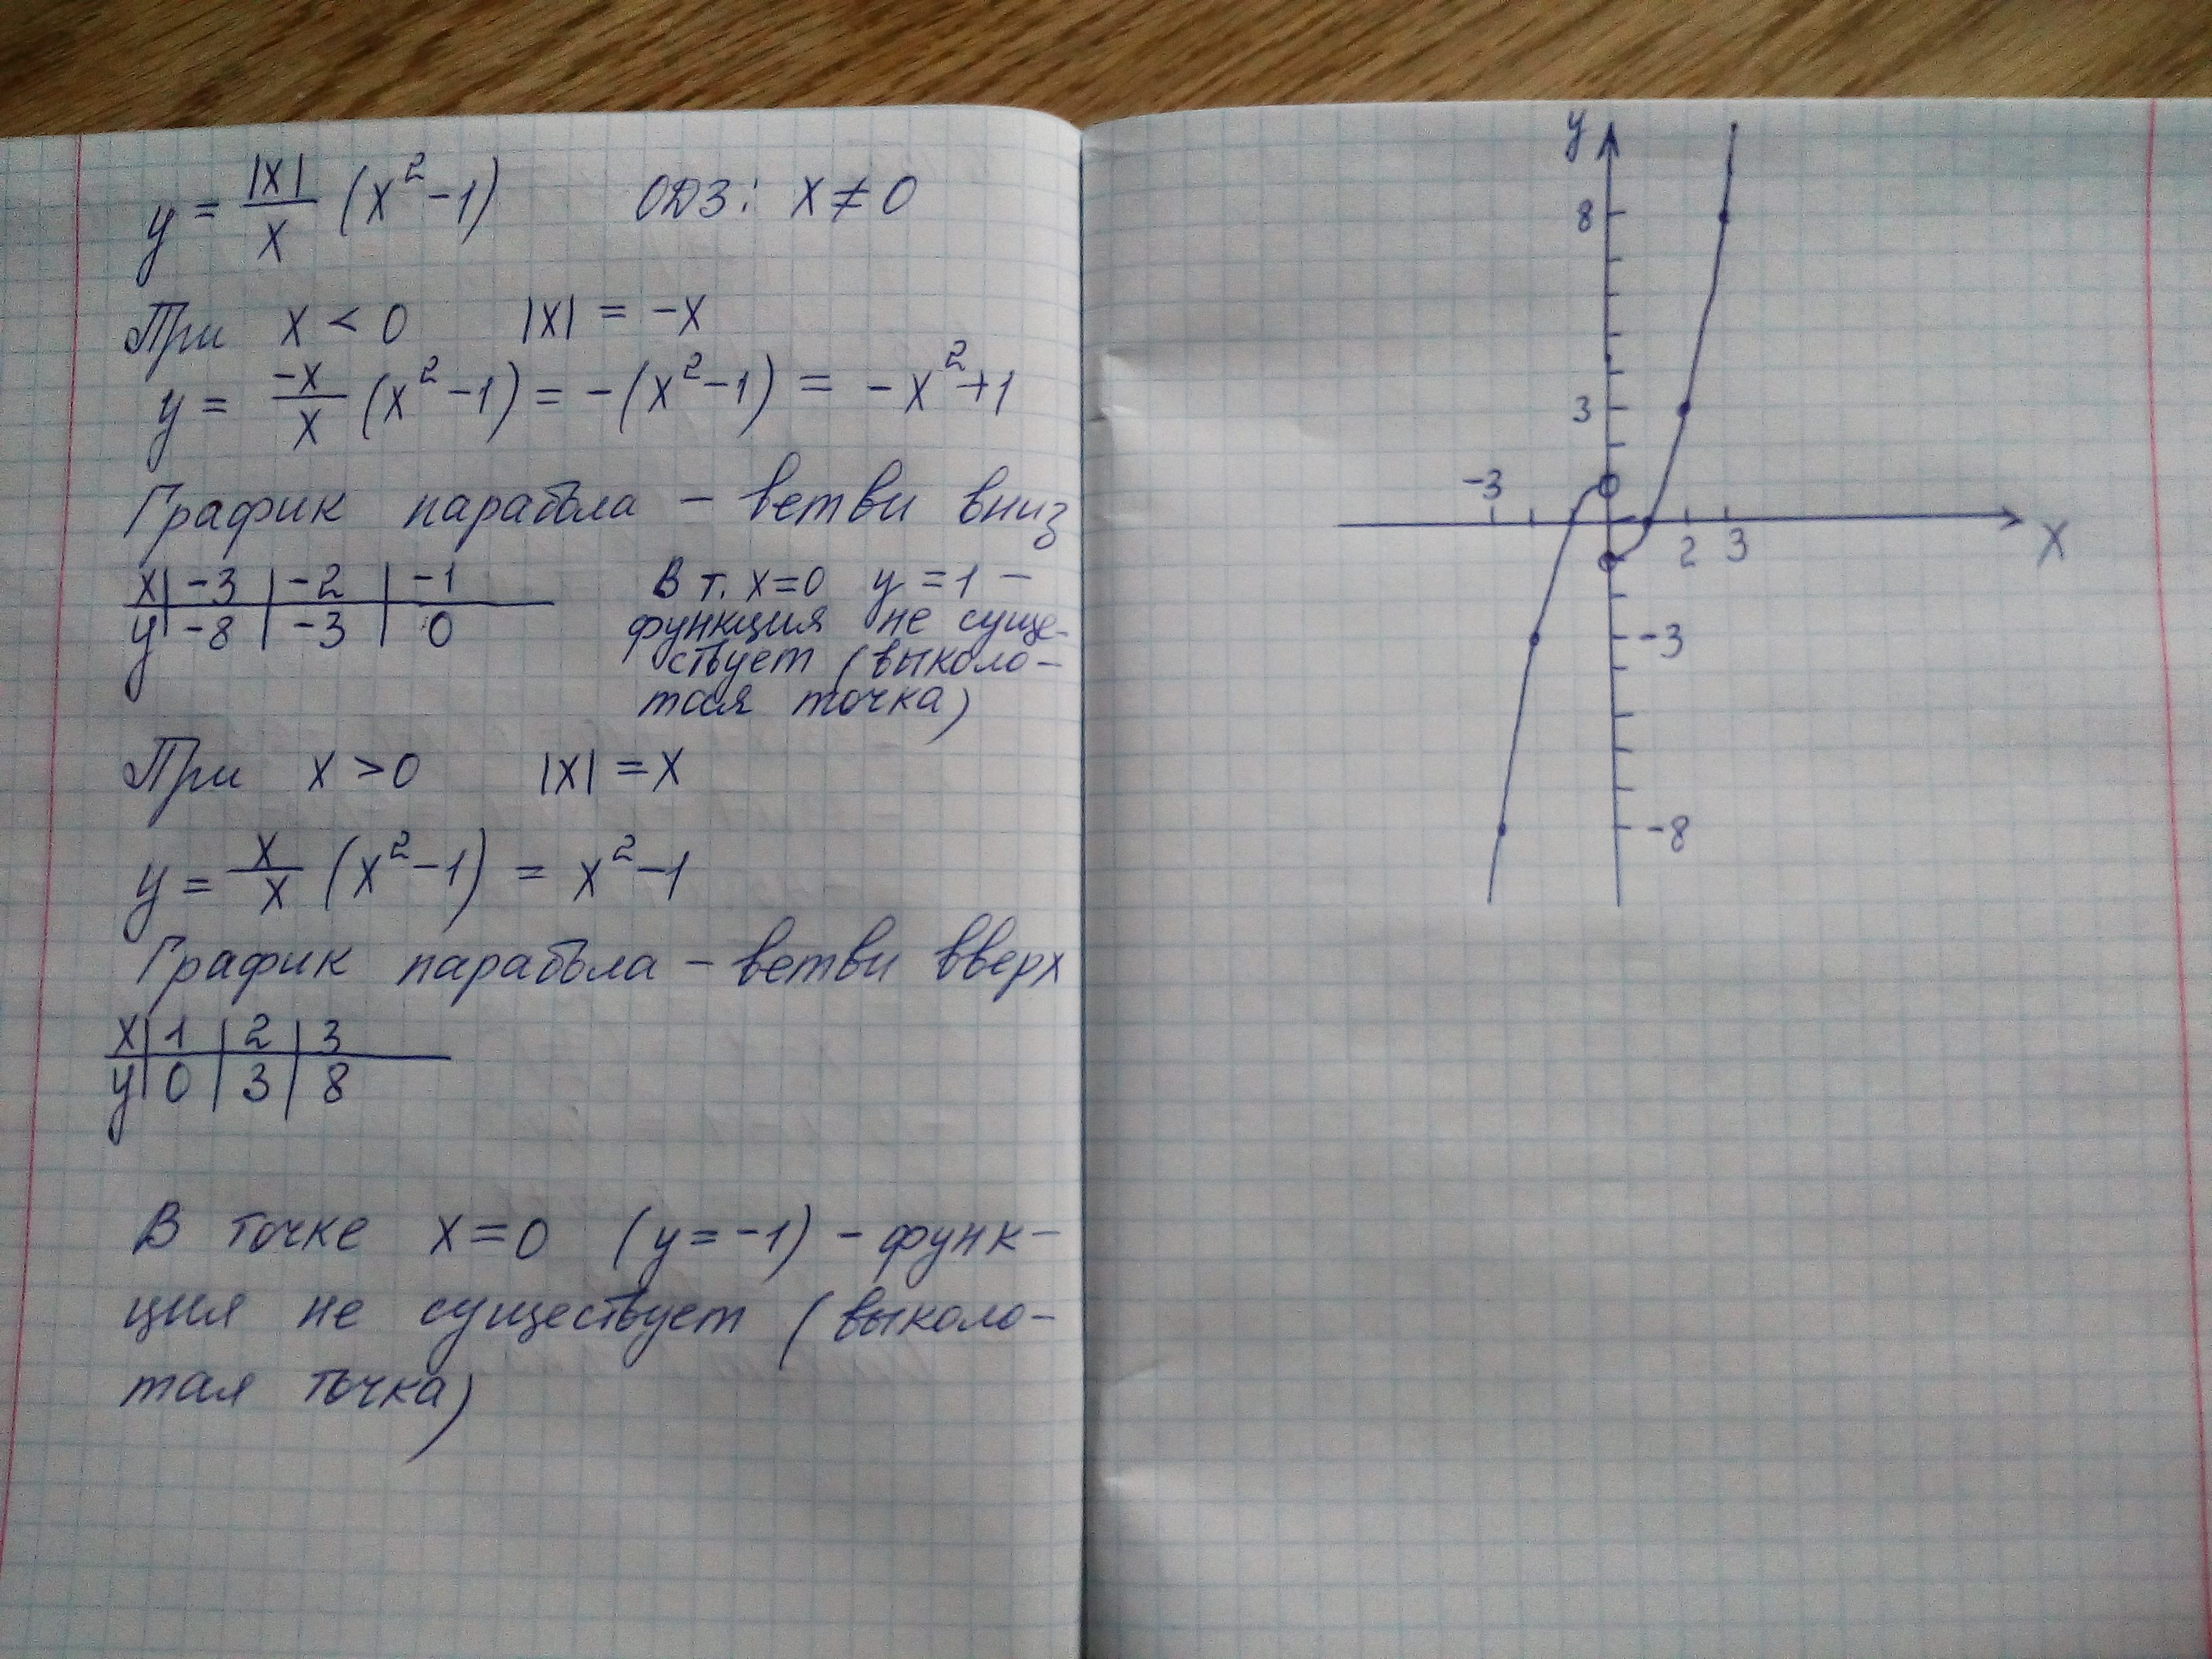 y = |x|/x (x² - 1) ОДЗ: x ≠ 0
При x < 0 |x| = -x
y = -x/x (x² - 1) = -(x² - 1) = -x² + 1
График парабола - ветви вниз
x | -3 | -2 | -1
y | -8 | -3 | 0
В т. x = 0 y = 1 -
функция не суще-
ствует (выколо-
тая точка)
При x > 0 |x| = x
y = x/x (x² - 1) = x² - 1
График парабола - ветви вверх
x | 1 | 2 | 3
y | 0 | 3 | 8
В точке x = 0 (y = -1) - функ-
ция не существует (выколо-
тая точка)
y
8
3
-3
2 3 x
-3
-8